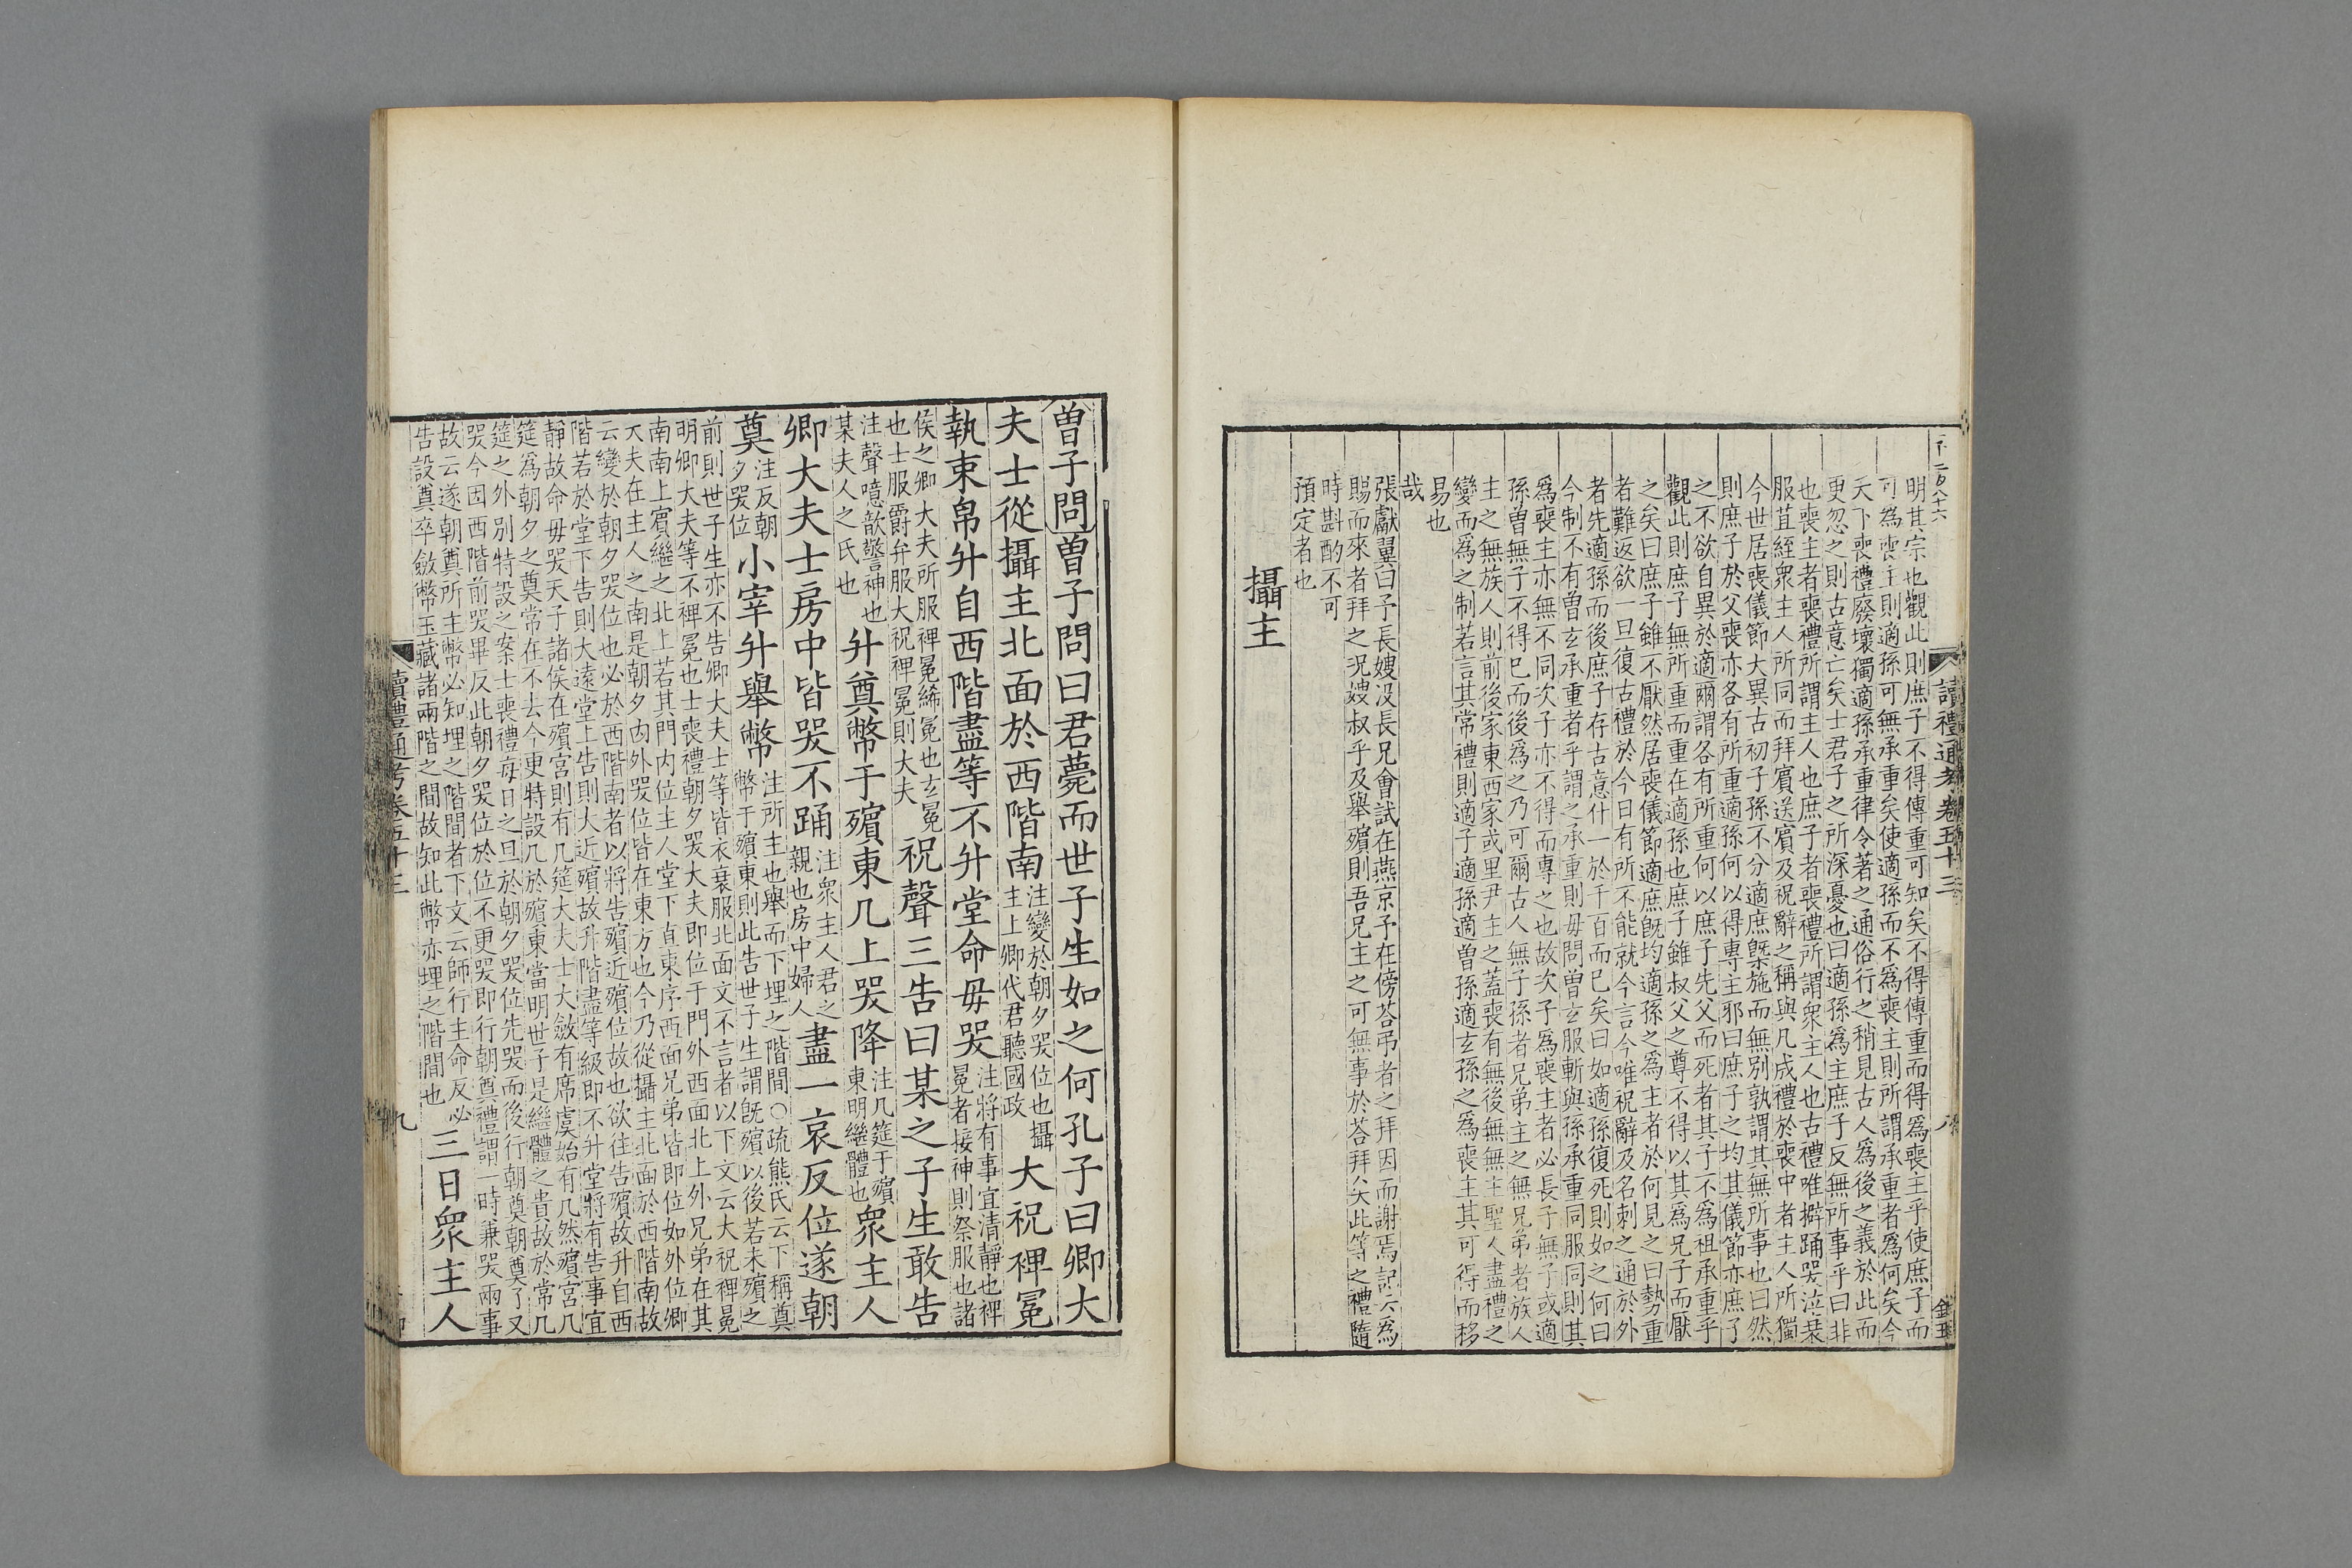 讀禮通考卷五十三 八
明其宗也觀此則庶子不得傳重可知矣不得傳重而得爲喪主乎使庶子而
可爲喪主則適孫可無承重矣使適孫而不爲喪主則所謂承重者爲何矣今
天下喪禮廢壞獨適孫承重律令著之通俗行之稍見古人爲後之義於此而
更忽之則古意亡矣士君子之所深憂也曰適孫爲主庶子反無所事乎曰非
也喪主者喪禮所謂主人也庶子者喪禮所謂衆主人也古禮唯擗踊哭泣衰
服苴絰衆主人所同而拜賓送賓及祝辭之稱與凡成禮於喪中者主人所獨
今世居喪儀節大異古初子孫不分適庶槩施而無別孰謂其無所事也曰然
則庶子於父喪亦各有所重適孫何以得專主耶曰庶子之均其儀節亦庶子
之不欲自異於適爾謂各有所重何以庶子先父而死者其子不爲祖承重乎
觀此則庶子無所重而重在適孫也庶子雖叔父之尊不得以其爲兄子而厭
之矣曰庶子雖不厭然居喪儀節適庶旣均適孫之爲主者於何見之曰勢重
者難返欲一旦復古禮於今日有所不能就今言今唯祝辭及名刺之通於外
者先適孫而後庶子存古意什一於千百而已矣曰如適孫復死則如之何曰
今制不有曾玄承重者乎謂之承重則毋問曾玄服斬與孫承重同服同則其
爲喪主亦無不同次子亦不得而專之也故次子爲喪主者必長子無子或適
孫曾無子不得已而後爲之乃可爾古人無子孫者兄弟主之無兄弟者族人
主之無族人則前後家東西家或里尹主之蓋喪有無後無無主聖人盡禮之
變而爲之制若言其常禮則適子適孫適曾孫適玄孫之爲喪主其可得而移
易也
哉
張獻翼曰予長嫂没長兄會試在燕京予在傍荅弔者之拜因而謝焉記云爲
賜而來者拜之况嫂叔乎及舉殯則吾兄主之可無事於荅拜矣此等之禮隨
時斟酌不可
預定者也
攝主
曾子問曾子問曰君薨而世子生如之何孔子曰卿大
夫士從攝主北面於西階南注變於朝夕哭位也攝主上卿代君聽國政大祝裨冕
執束帛升自西階盡等不升堂命毋哭注將有事宜清靜也裨冕者接神則祭服也諸
侯之卿大夫所服裨冕絺冕也玄冕也士服爵弁服大祝裨冕則大夫祝聲三告曰某之子生敢告
注聲噫歆警神也某夫人之氏也升奠幣于殯東几上哭降注几筵于殯東明繼體也衆主人
卿大夫士房中皆哭不踊注衆主人君之親也房中婦人盡一哀反位遂朝
奠注反朝夕哭位小宰升舉幣注所主也舉而下埋之階間○疏熊氏云下稱奠幣于殯東則此告世子生謂旣殯以後若未殯之
前則世子生亦不告卿大夫士等皆衣衰服北面文不言者以下文云大祝裨冕
明卿大夫等不裨冕也士喪禮朝夕哭大夫即位于門外西面北上外兄弟在其
南南上賓繼之北上若其門内位主人堂下直東序西面兄弟皆即位如外位卿
大夫在主人之南是朝夕内外哭位皆在東方也今乃從攝主北面於西階南故
云變於朝夕哭位也必於西階南者以將告殯近殯位故也欲往告殯故升自西
階若於堂下告則大遠堂上告則大近殯故升階盡等級即不升堂將有告事宜
靜故命毋哭天子諸侯在殯宮則有几筵大夫士大斂有席虞始有几然殯宮几
筵爲朝夕之奠常在不去今更特設几於殯東當明世子是繼體之貴故於常几
筵之外別特設之案士喪禮每日之旦於朝夕哭位先哭而後行朝奠朝奠了又
哭今因西階前哭畢反此朝夕哭位於位不更哭即行朝奠禮謂一時兼哭兩事
故云遂朝奠所主幣必知埋之階間者下文云師行主命反必
告設奠卒斂幣玉藏諸兩階之間故知此幣亦埋之階間也三日衆主人
讀禮通考卷五十三 九